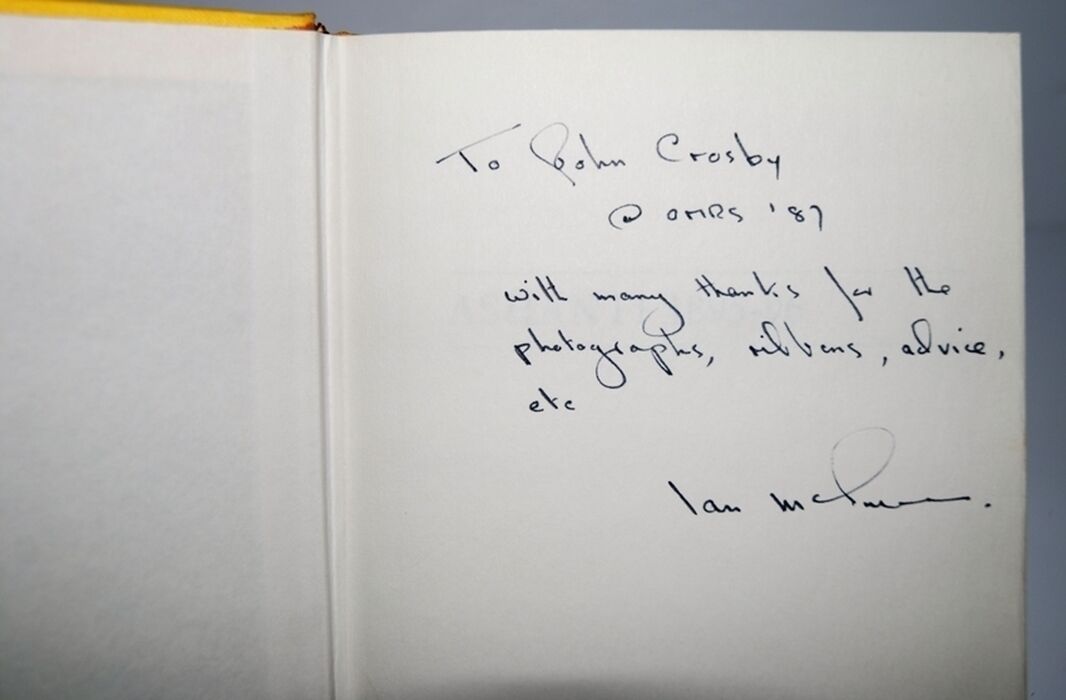 To John Crosby
@ OMRS '87
with many thanks for the
photographs, ribbons, advice,
etc
Ian McInnes.